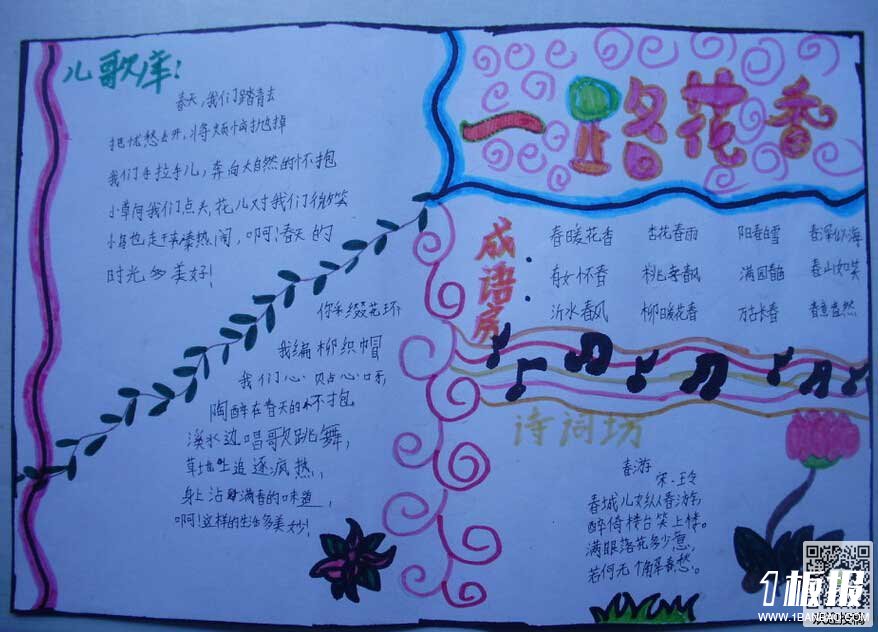 儿歌库:
春天,我们踏青去
把忧愁丢开,将烦恼抛掉
我们手拉手儿,奔向大自然的怀抱
小草向我们点头,花儿对我们微笑
小鸟也走来凑热闹,啊!春天的
时光多美好!
你采缀花环
我编柳织帽
我们心贴心呀,
陶醉在春天的怀抱
溪水边唱歌跳舞,
草地上追逐疯热,
身上沾满春的味道,
啊!这样的生活多美妙!
一路花香
成语库:
春暖花香 杏花春雨 阳春白雪
有女怀春 桃李春风 满园春色 春山如笑
沂水春风 柳暖花春 万古长春 春意盎然
诗词坊
春游
宋·王令
春城儿女纵春游,
醉倚楼台笑上楼。
满眼落花多少意,
若何无个解春愁。
1板报
WWW.1BANBAO.COM
欢迎投稿